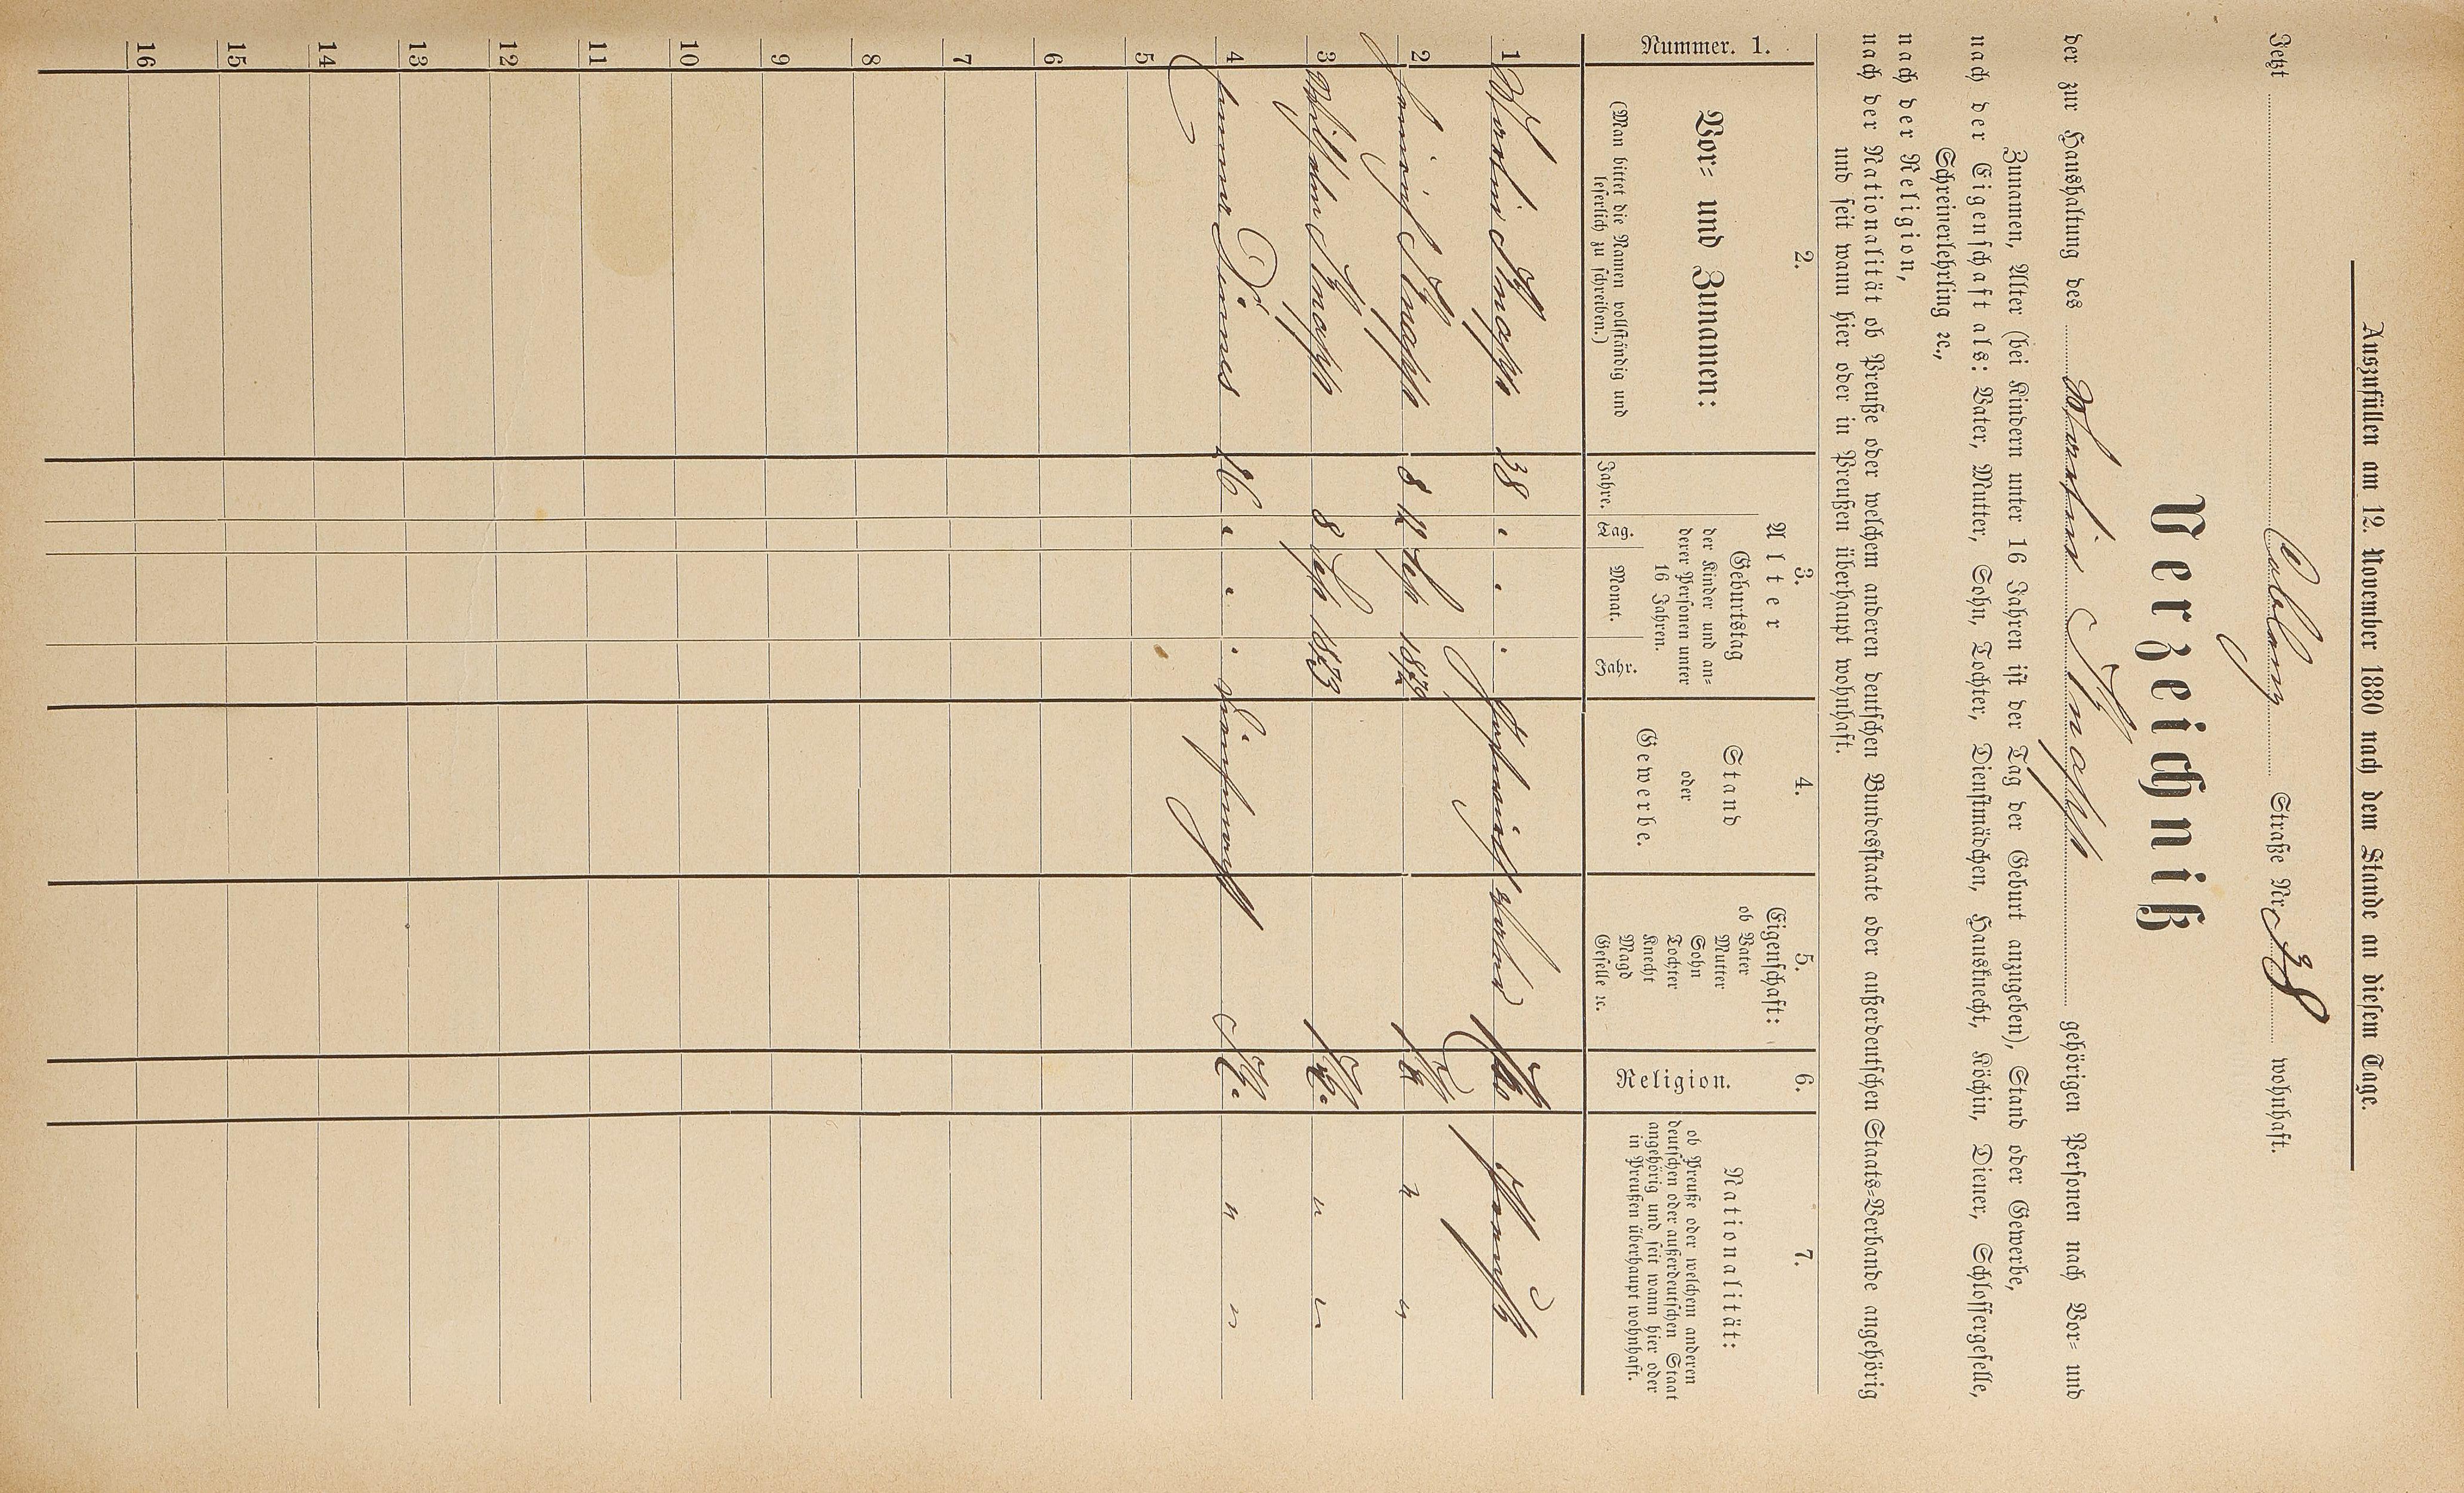 Auszufüllen am 12. November 1880 nach dem Stande an diesem Tage.
Jetzt Coblenz Straße Nr. 38 wohnhaft.
Verzeichniß
der zur Haushaltung des Martin Knopp gehörigen Personen nach Vor- und
Zunamen, Alter (bei Kindern unter 16 Jahren ist der Tag der Geburt anzugeben), Stand oder Gewerbe,
nach der Eigenschaft als: Vater, Mutter, Sohn, Tochter, Dienstmädchen, Hausknecht, Köchin, Diener, Schlossergeselle,
Schreinerlehrling ꝛc.,
nach der Religion,
nach der Nationalität ob Preuße oder welchem anderen deutschen Bundesstaate oder außerdeutschen Staats-Verbande angehörig
und seit wann hier oder in Preußen überhaupt wohnhaft.
Nummer. 1.
2.
Vor- und Zunamen:
(Man bittet die Namen vollständig und
leserlich zu schreiben.)
3.
Alter
Jahre.
Geburtstag
der Kinder und an-
derer Personen unter
16 Jahren.
Tag. Monat. Jahr.
4.
Stand
oder
Gewerbe.
5.
Eigenschaft:
ob Vater
Mutter
Sohn
Tochter
Knecht
Magd
Geselle ꝛc.
6.
Religion.
7.
Nationalität:
ob Preuße oder welchem anderen
deutschen oder außerdeutschen Staat
angehörig und seit wann hier oder
in Preußen überhaupt wohnhaft.
1 Martin Knopp 38 Vater Kth Preuß
2 Heinrich Knopp 8 12 Sept 1872 Kth " "
3 Wilhelm Knopp 8 Sept 1873 Kth. " "
4 16 Kth. " "
5
6
7
8
9
10
11
12
13
14
15
16